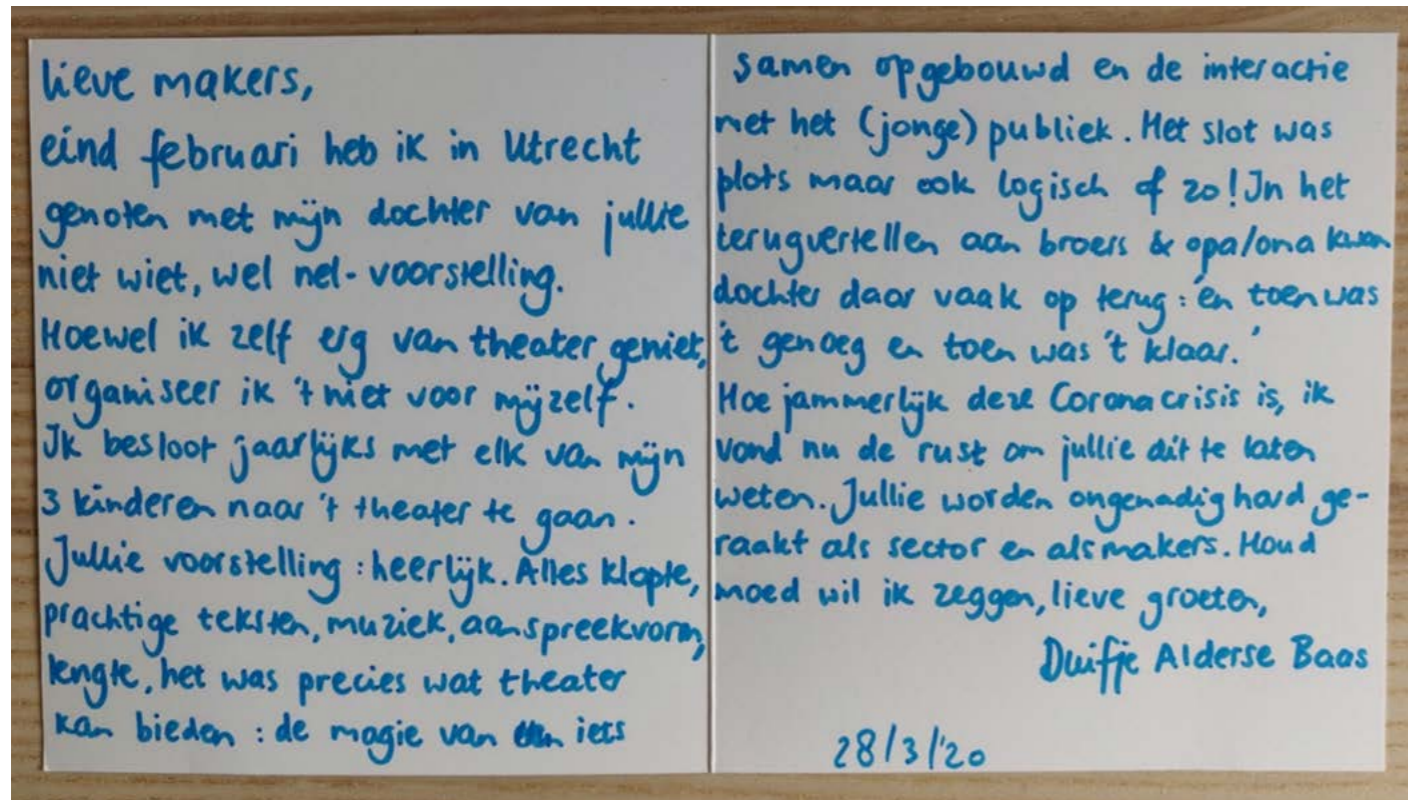 lieve makers,
eind februari heb ik in Utrecht
genoten met mijn dochter van jullie
niet wiet, wel nel-voorstelling.
Hoewel ik zelf erg van theater geniet,
organiseer ik 't niet voor mijzelf.
Ik besloot jaarlijks met elk van mijn
3 kinderen naar 't theater te gaan.
Jullie voorstelling: heerlijk. Alles klopte,
prachtige teksten, muziek, aanspreekvorm,
lengte, het was precies wat theater
kan bieden: de magie van iets
samen opgebouwd en de interactie
met het (jonge) publiek. Het slot was
plots maar ook logisch of zo! In het
terugvertellen aan broers & opa/oma kwam
dochter daar vaak op terug: 'en toen was
't genoeg en toen was 't klaar.'
Hoe jammerlijk deze Corona crisis is, ik
vond nu de rust om jullie dit te laten
weten. Jullie worden ongenadig hard ge-
raakt als sector en als makers. Houd
moed wil ik zeggen, lieve groeten,
Duifje Alderse Baas
28/3/'20